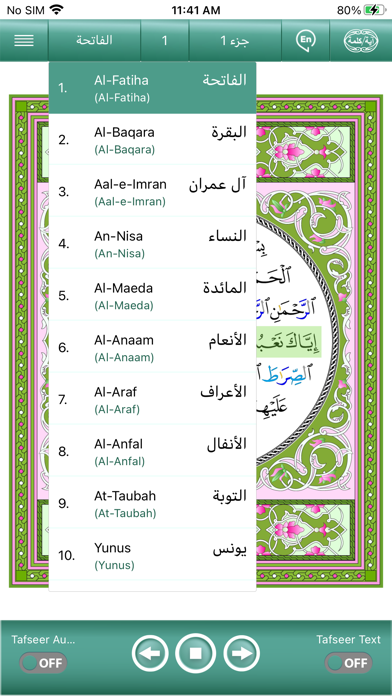 No SIM 11:41 AM 80%
الفاتحة 1 جزء 1 En آية/كلمة
1. Al-Fatiha الفاتحة
(Al-Fatiha)
2. Al-Baqara البقرة
(Al-Baqara)
3. Aal-e-Imran آل عمران
(Aal-e-Imran)
4. An-Nisa النساء
(An-Nisa)
5. Al-Maeda المائدة
(Al-Maeda)
6. Al-Anaam الأنعام
(Al-Anaam)
7. Al-Araf الأعراف
(Al-Araf)
8. Al-Anfal الأنفال
(Al-Anfal)
9. At-Taubah التوبة
(At-Taubah)
10. Yunus يونس
(Yunus)
الرَّحْمَنِ
إِيَّاكَ
الصِّرَاطَ
Tafseer Au... Tafseer Text
OFF OFF